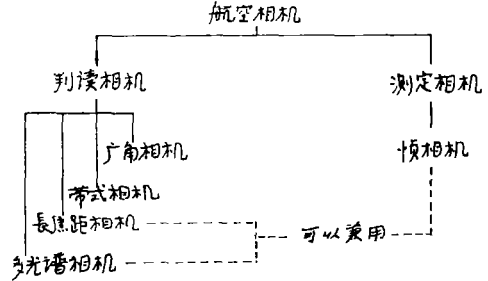 航空相机
判读相机
测定相机
广角相机
帧相机
带式相机
長焦距相机
可以兼用
多光谱相机